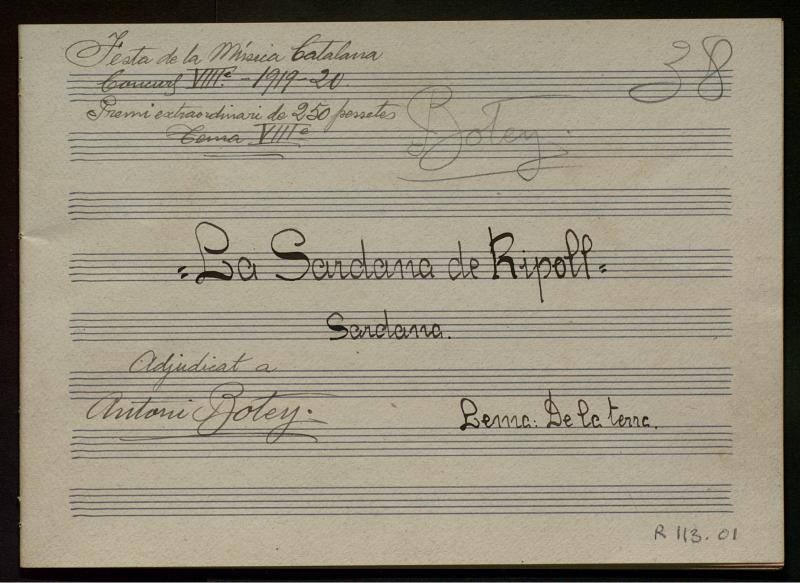 Festa de la Música Catalana
Concurs VIIIè. - 1919-20.
38
Premi extraordinari de 250 pessetes
Tema VIIIè
Botey.
"La Sardana de Ripoll"
Sardana.
Adjudicat a
Antoni Botey.
Lema: De la terra.
R 113.01